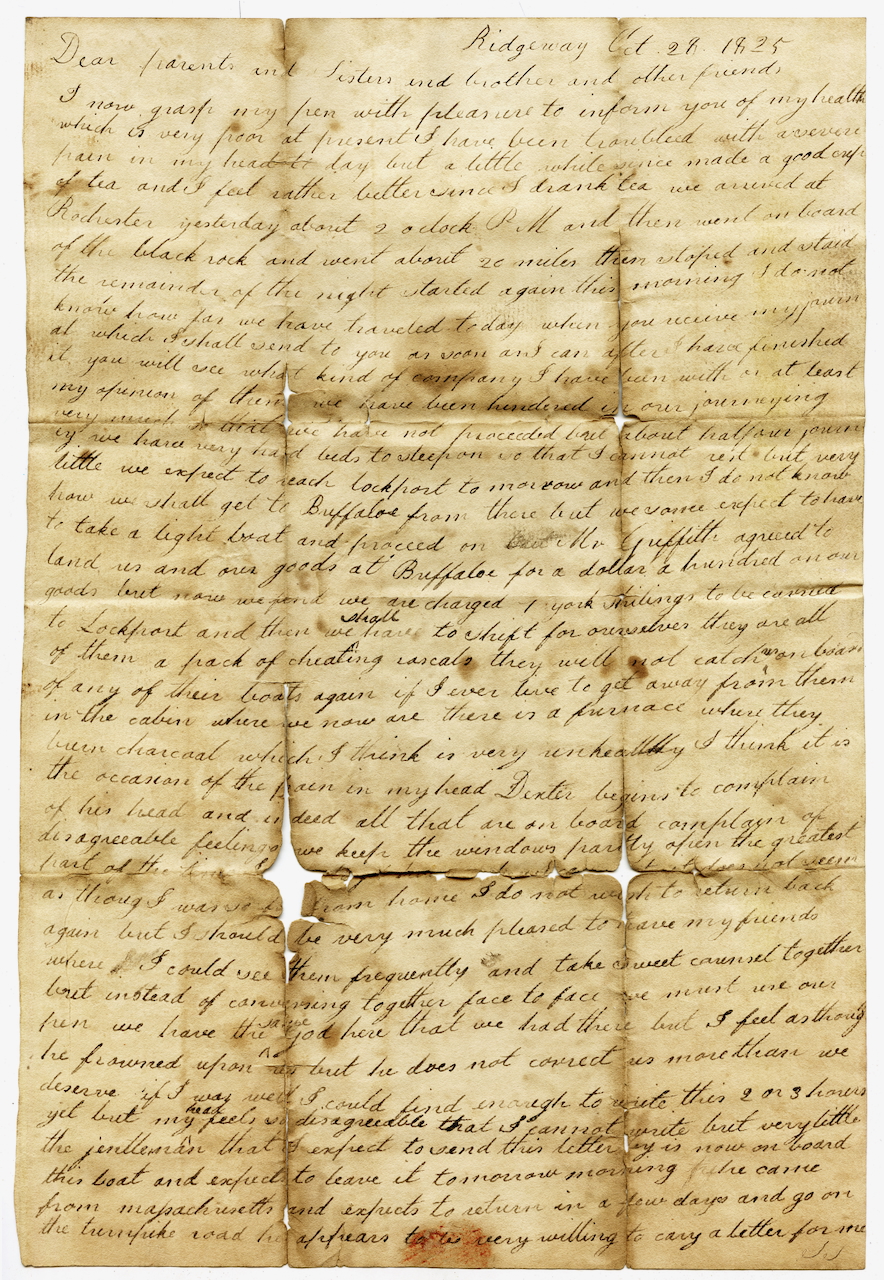 Ridgeway Oct. 28 1825
Dear parents and Sisters and brother and other friends
I now grasp my pen with pleasure to inform you of my health
which is very poor at present I have been troubled with a severe
pain in my head to day but a little while since made a good cup
of tea and I feel rather better since I drank tea we arrived at
Rochester yesterday about 2 oclock P. M and then went on board
of the black rock and went about 20 miles then stoped and staid
the remainder of the night started again this morning I do not
know how far we have traveled to day when you receive my journ
al which I shall send to you as soon as I can after I have finished
it you will see what kind of company I have been with or at least
my opinion of them we have been hindered in our journeying
very much so that we have not proceeded but about half our journ
ey we have very hard beds to sleep on so that I cannot rest but very
little we expect to reach Lockport to morrow and then I do not know
how we shall get to Buffaloe from there but we some expect to have
to take a light boat and proceed on Mr Griffith agreed to
land us and our goods at Buffaloe for a dollar a hundred on our
goods but now we find we are charged 7 york shilings to be carried
to Lockport and then we shall have to shift for ourselves they are all
of them a pack of cheating rascals they will not catch us on board
of any of their boats again if I ever live to get away from them
in the cabin where we now are there is a furnace where they
burn charcoal which I think is very unhealthy I think it is
the occasion of the pain in my head Dexter begins to complain
of his head and indeed all that are on board complain of
disagreeable feelings we keep the windows partly open the greatest
part of the time I does not seem
as thoug I was so from home I do not wish to return back
again but I should be very much pleased to have my friends
where I could see them frequently and take sweet counsel together
but instead of conversing together face to face we must use our
pen we have the same god here that we had there but I feel as thoug
he frowned upon us but he does not correct us more than we
deserve if I was well I could find enough to write this 2 or 3 hours
yet but my head feels so disagreeable that I cannot write but very little
the jentleman that I expect to send this letter by is now on board
this boat and expects to leave it tomorrow morning he came
from massachusetts and expects to return in a few days and go on
the turnpike road he appears to be very willing to cary a letter for me